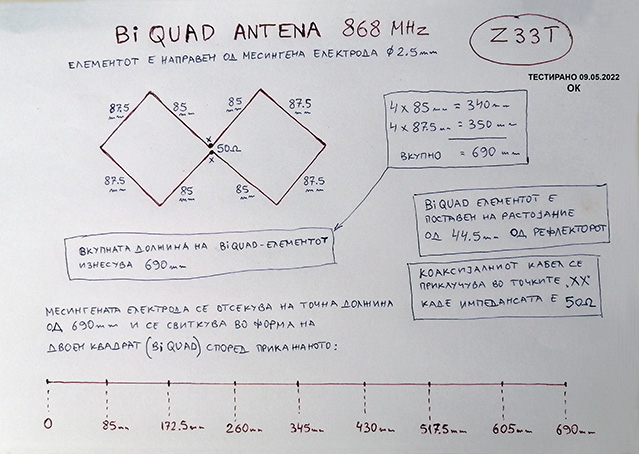 BiQUAD ANTENA 868 MHz
Z33T
ЕЛЕМЕНТОТ Е НАПРАВЕН ОД МЕСИНГЕНА ЕЛЕКТРОДА Ф 2.5mm
ТЕСТИРАНО 09.05.2022
OK
87.5 mm
85 mm
85 mm
87.5 mm
x
50Ω
x
87.5 mm
85 mm
85 mm
87.5 mm
4 x 85mm = 340mm
4 x 87.5mm = 350mm
ВКУПНО = 690mm
BiQUAD ЕЛЕМЕНТОТ Е
ПОСТАВЕН НА РАСТОЈАНИЕ
ОД 44.5mm ОД РЕФЛЕКТОРОТ
ВКУПНАТА ДОЛЖИНА НА BiQUAD-ЕЛЕМЕНТОТ
ИЗНЕСУВА 690mm
КОАКСИЈАЛНИОТ КАБЕЛ СЕ
ПРИКЛУЧУВА ВО ТОЧКИТЕ .XX.
КАДЕ ИМПЕДАНСАТА Е 50Ω
МЕСИНГЕНАТА ЕЛЕКТРОДА СЕ ОТСЕКУВА НА ТОЧНА ДОЛЖИНА
ОД 690mm И СЕ СВИТКУВА ВО ФОРМА НА
ДВОЕН КВАДРАТ (BiQUAD) СПОРЕД ПРИКАЖАНОТО:
0 85mm 172.5mm 260mm 345mm 430mm 517.5mm 605mm 690mm